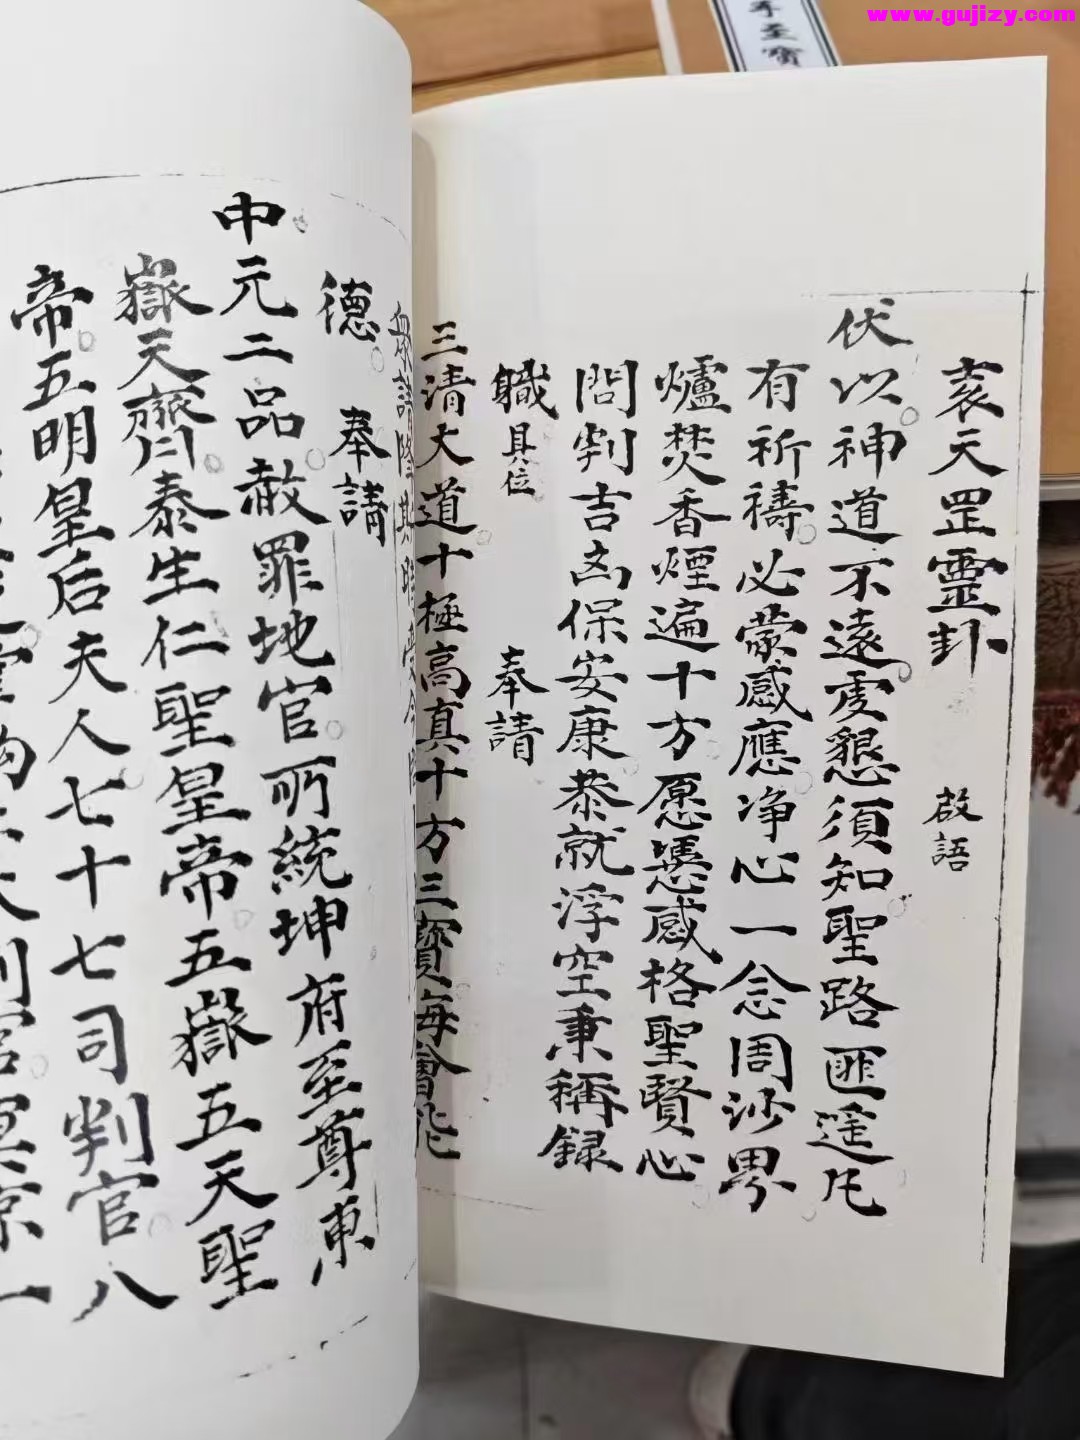 www.gujizy.com
至寶
袁天罡靈卦 啟語
伏以神道不遠虔懇須知聖路匪遙凡
有祈禱必蒙感應净心一念周沙界
爐焚香煙遍十方愿慿感格聖賢心
問判吉凶保安康恭就浮空秉稱錄
職具位 奉請
三清大道十極高真十方三寶海會
德 奉請
中元二品赦罪地官所統坤府至尊東
嶽天齊泰生仁聖聖皇帝五嶽五天聖
帝五明皇后夫人七十七司判官八